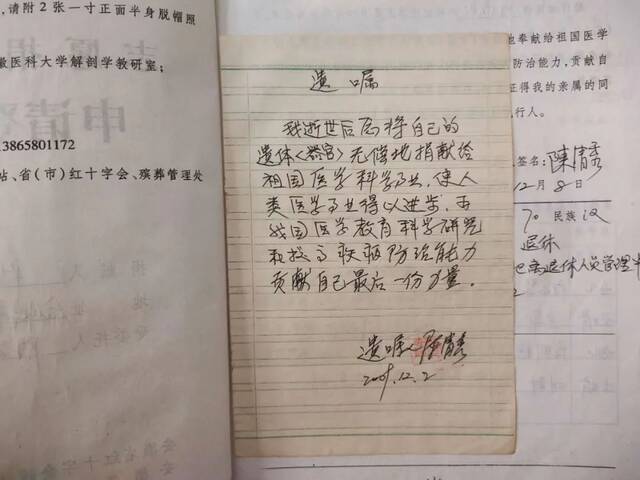 ,请附2张一寸正面半身脱帽照
徽医科大学解剖学教研室;
申请
13865801172
站、省(市)红十字会、殡葬管理处
遗嘱
我逝世后愿将自己的
遗体〈器官〉无偿地捐献给
祖国医学科学事业,使人
类医学事业得以进步,为
我国医学教育科学研究
和提高疾病防治能力
贡献自己最后一份力量。
遗嘱人
2009.12.2
地奉献给祖国医学
防治能力,贡献自
证得我的亲属的同
行人。
签名:陈清秀
12月8日
70 民族 汉
退休
离退休人员管理